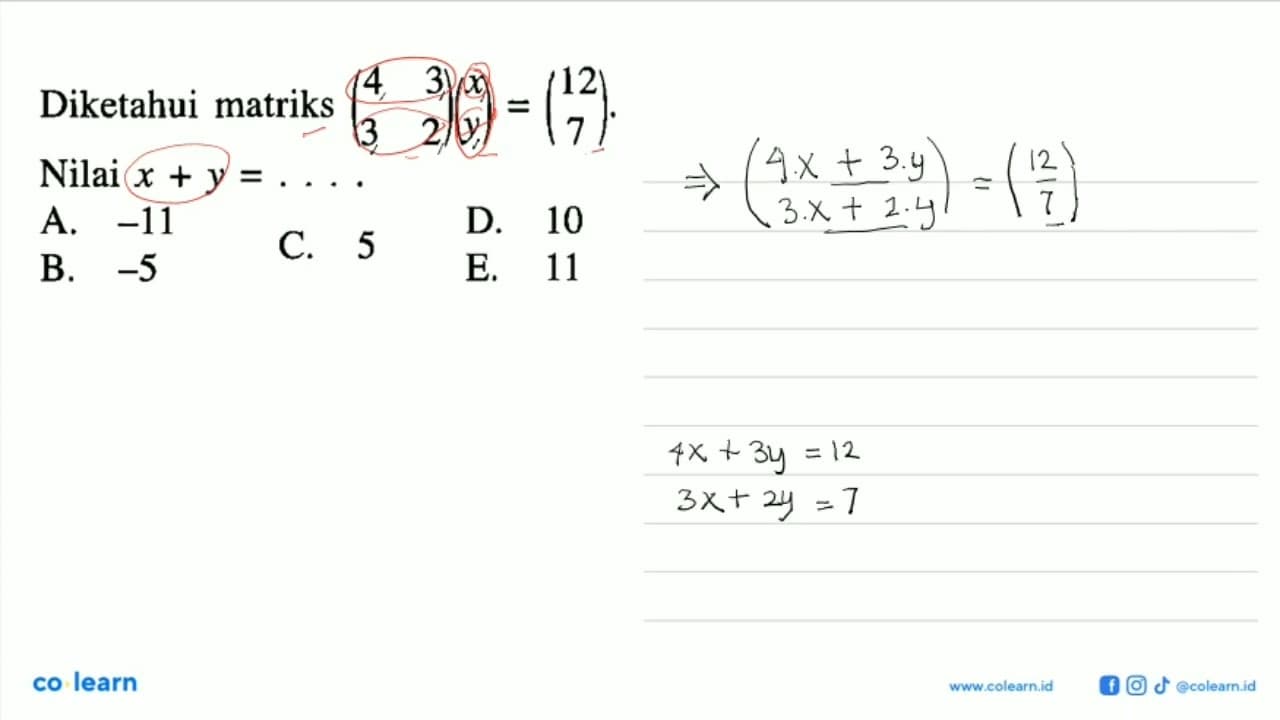 Diketahui matriks (4 3 3 2)(x y) = (12 7).
Nilai x + y = . . . .
A. –11
B. –5
C. 5
D. 10
E. 11
⇒ (4.x + 3.y 3.x + 2.y) = (12 7)
4x + 3y = 12
3x + 2y = 7
co learn
www.colearn.id
@colearn.id